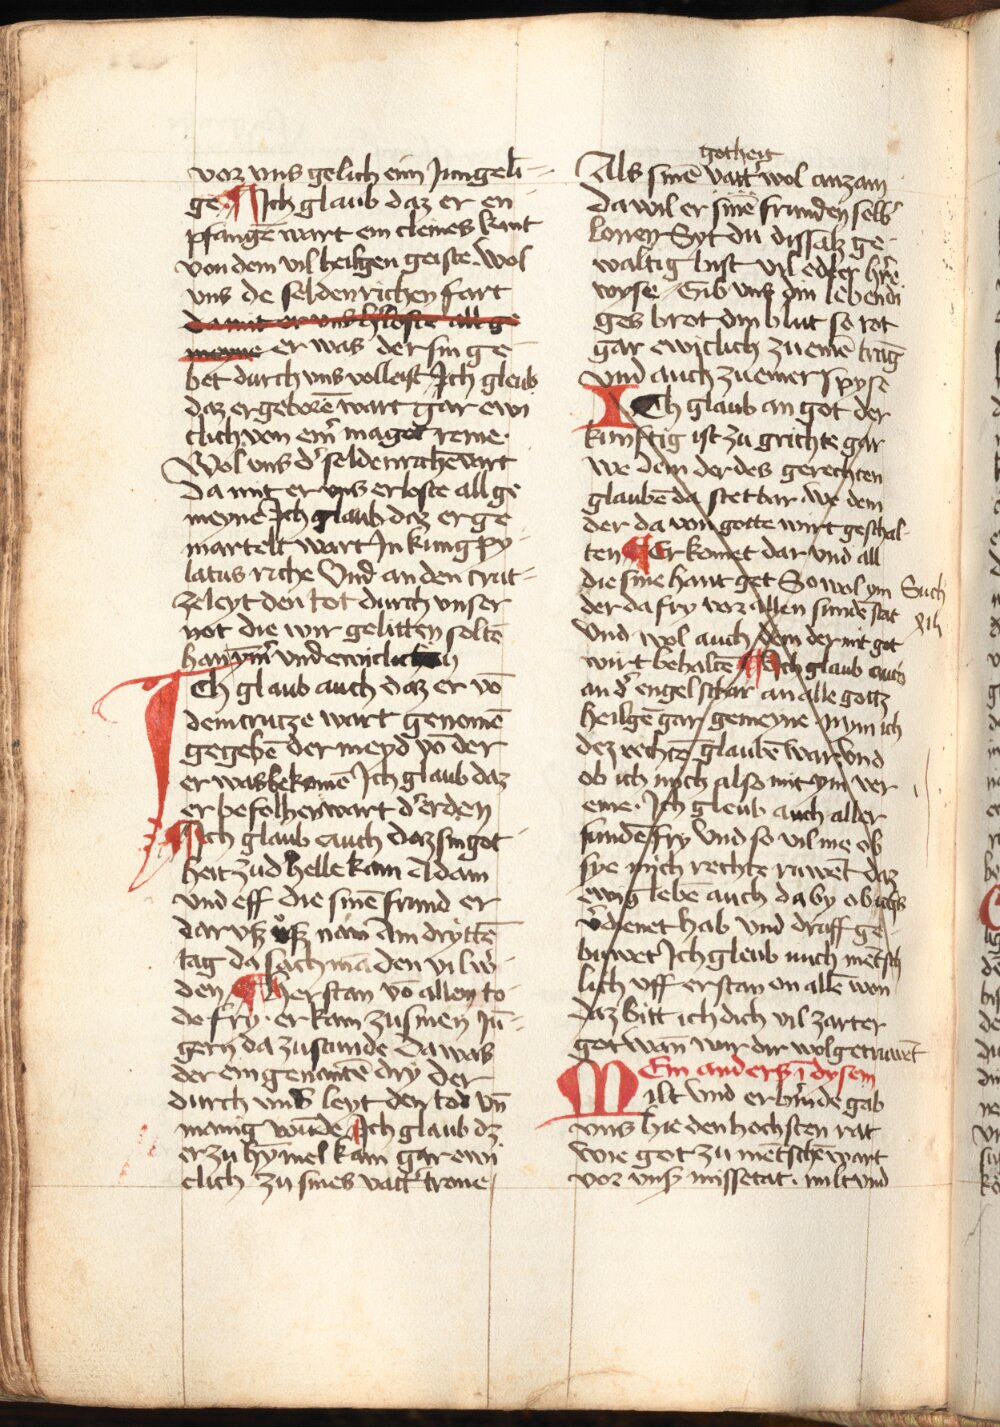 vor uns gelich ein Jungeli-
ge. Ich glaub daz er en
pfangē wart ein cleines kint
von dem vil heilgen geiste. wol
uns de seldenrichen fart
damit er uns erloste all ge
meyne er was der sin ge-
bet durch uns volleist Ich gleub
daz er geborē wart gar ewi
clich von eim̄ maget reine.
Wol uns d' seldenrichē vart
Da mit er uns erloste all ge
meyne Ich glaub daz er ge
martelt wart In kunig py-
latus riche Und an den crut-
ze leyt den tot durch unser
not die wir gelitten soltē
han ym̄ und ewiclich
Ich glaub auch daz er vō
dem crutze wart genomē
gegebē der meyd vō der
er was bekomē Ich glaub daz
er befolhen wart d' erden
Ich glaub auch daz sin got-
heit zu d helle kam Adam
und eff die sinē frund er
dar usz nam Am drittē
tag da sach mā den vil w'-
den Er erstan vō allen to-
de fry. er kam zu sinen Jū-
gern da zustunde Da was
der ein genantē dry der
durch uns leyt den tod vn̄
manig wūde Ich glaub dz
er zu hymel kam gar ewi
clich zu sines vatt' trone
gotheit
Als sinē vatt' wol anzam
Da wil er sinē frunden selb'
lonen Syt du dissalz ge-
waltig bist vil edler h're
wyse Gib uns din lebendi
ges brot din blut so rot
gar ewiclich zu einē trāg
und auch zu einer spyse
Ich glaub an got der
kunftig ist zu grichte gar
we dem der des gerechten
glaubē da stet bar we dem
der da von gotte wirt geschal-
ten Er komet dar und all
die sine hant get So wol ym
Such
der da fry vor allen sunde stat
xih
Und wol auch dem der mit got
wirt behaltē Ich glaub auch
an d' engel schar an alle gotz
heilgē gar gemeyne. nym ich
dez rechtē glaubē war und
ob ich mich also mit ym ver
eine. Ich gleub auch aller
sundē fry Und so vil me ob
sye mich rechte ruwēt daz
ewig lebē auch da by ob ichs
v'dienet hab und druff ge-
buwet Ich gleub mich mētsch
lich uff erstan on allē won
daz bitt ich dich vil zarter
got wan wir dir wol getruwēt
Ein anders ī dysem
Milt und erbermde gab
uns hie den hochsten rat
wie got zu mētschē wart
vor unsz missetat. milt und